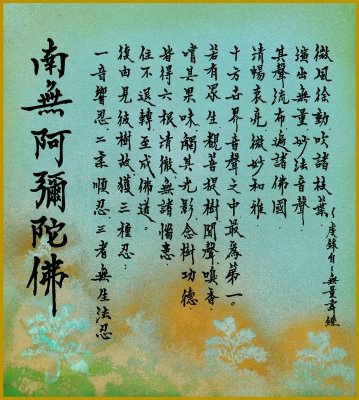 ~虔錄自~無量壽經
微風徐動吹諸枝葉
演出無量妙法音聲
其聲流布遍諸佛國
清暢哀亮微妙和雅.
十方世界音聲之中最為第一。
若有眾生覩菩提樹聞聲嗅香.
嚐其果味觸其光影念樹功德.
皆得六根清徹無諸惱患.
住不退轉至成佛道。
復由見彼樹故獲三種忍:
一音響忍二柔順忍三者無生法忍
南無阿彌陀佛